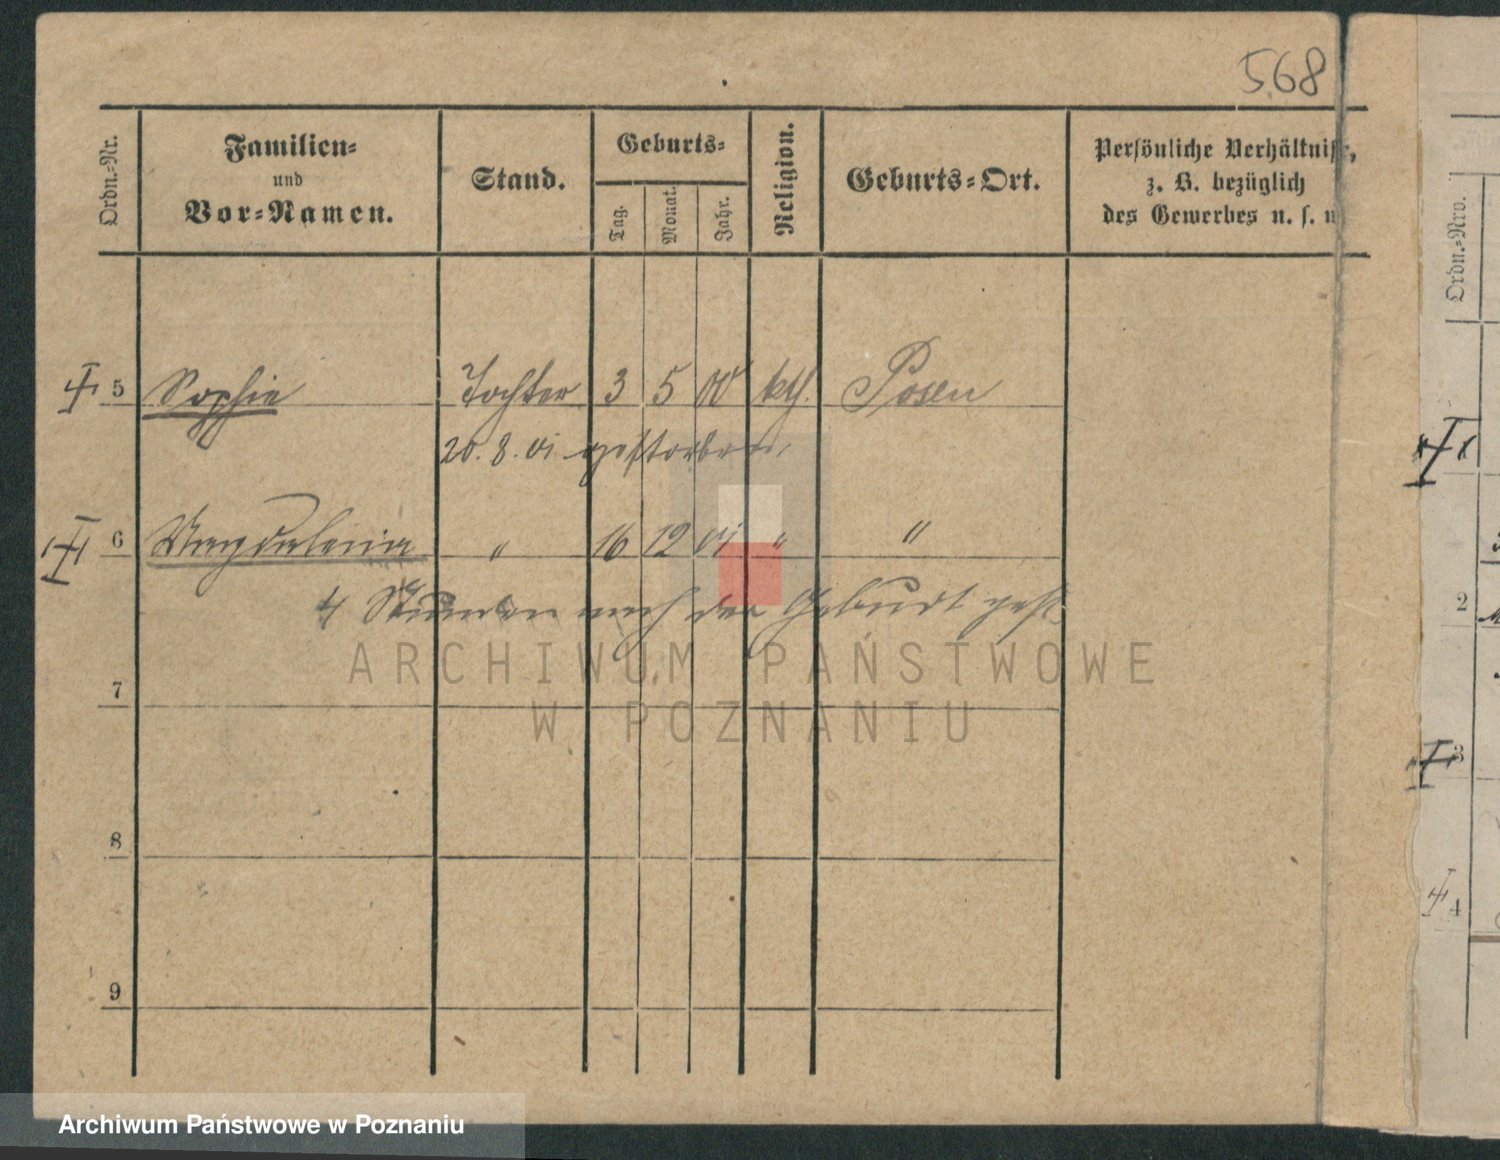 568
Ordn.-Nr.
Familien-
und
Vor-Namen.
Stand.
Geburts-
Tag.
Monat.
Jahr.
Religion.
Geburts-Ort.
Persönliche Verhältnisse,
z. B. bezüglich
des Gewerbes u. s. w.
5 Sophie Tochter 3 5 00 kth. Posen
20. 8. 01 gestorben.
6 Magdalena " 16 12 01 " "
4 Stunden nach der Geburt gest.
7
8
9
Ordn.-Nro.
2
3
4
ARCHIWUM PAŃSTWOWE
W POZNANIU
Archiwum Państwowe w Poznaniu